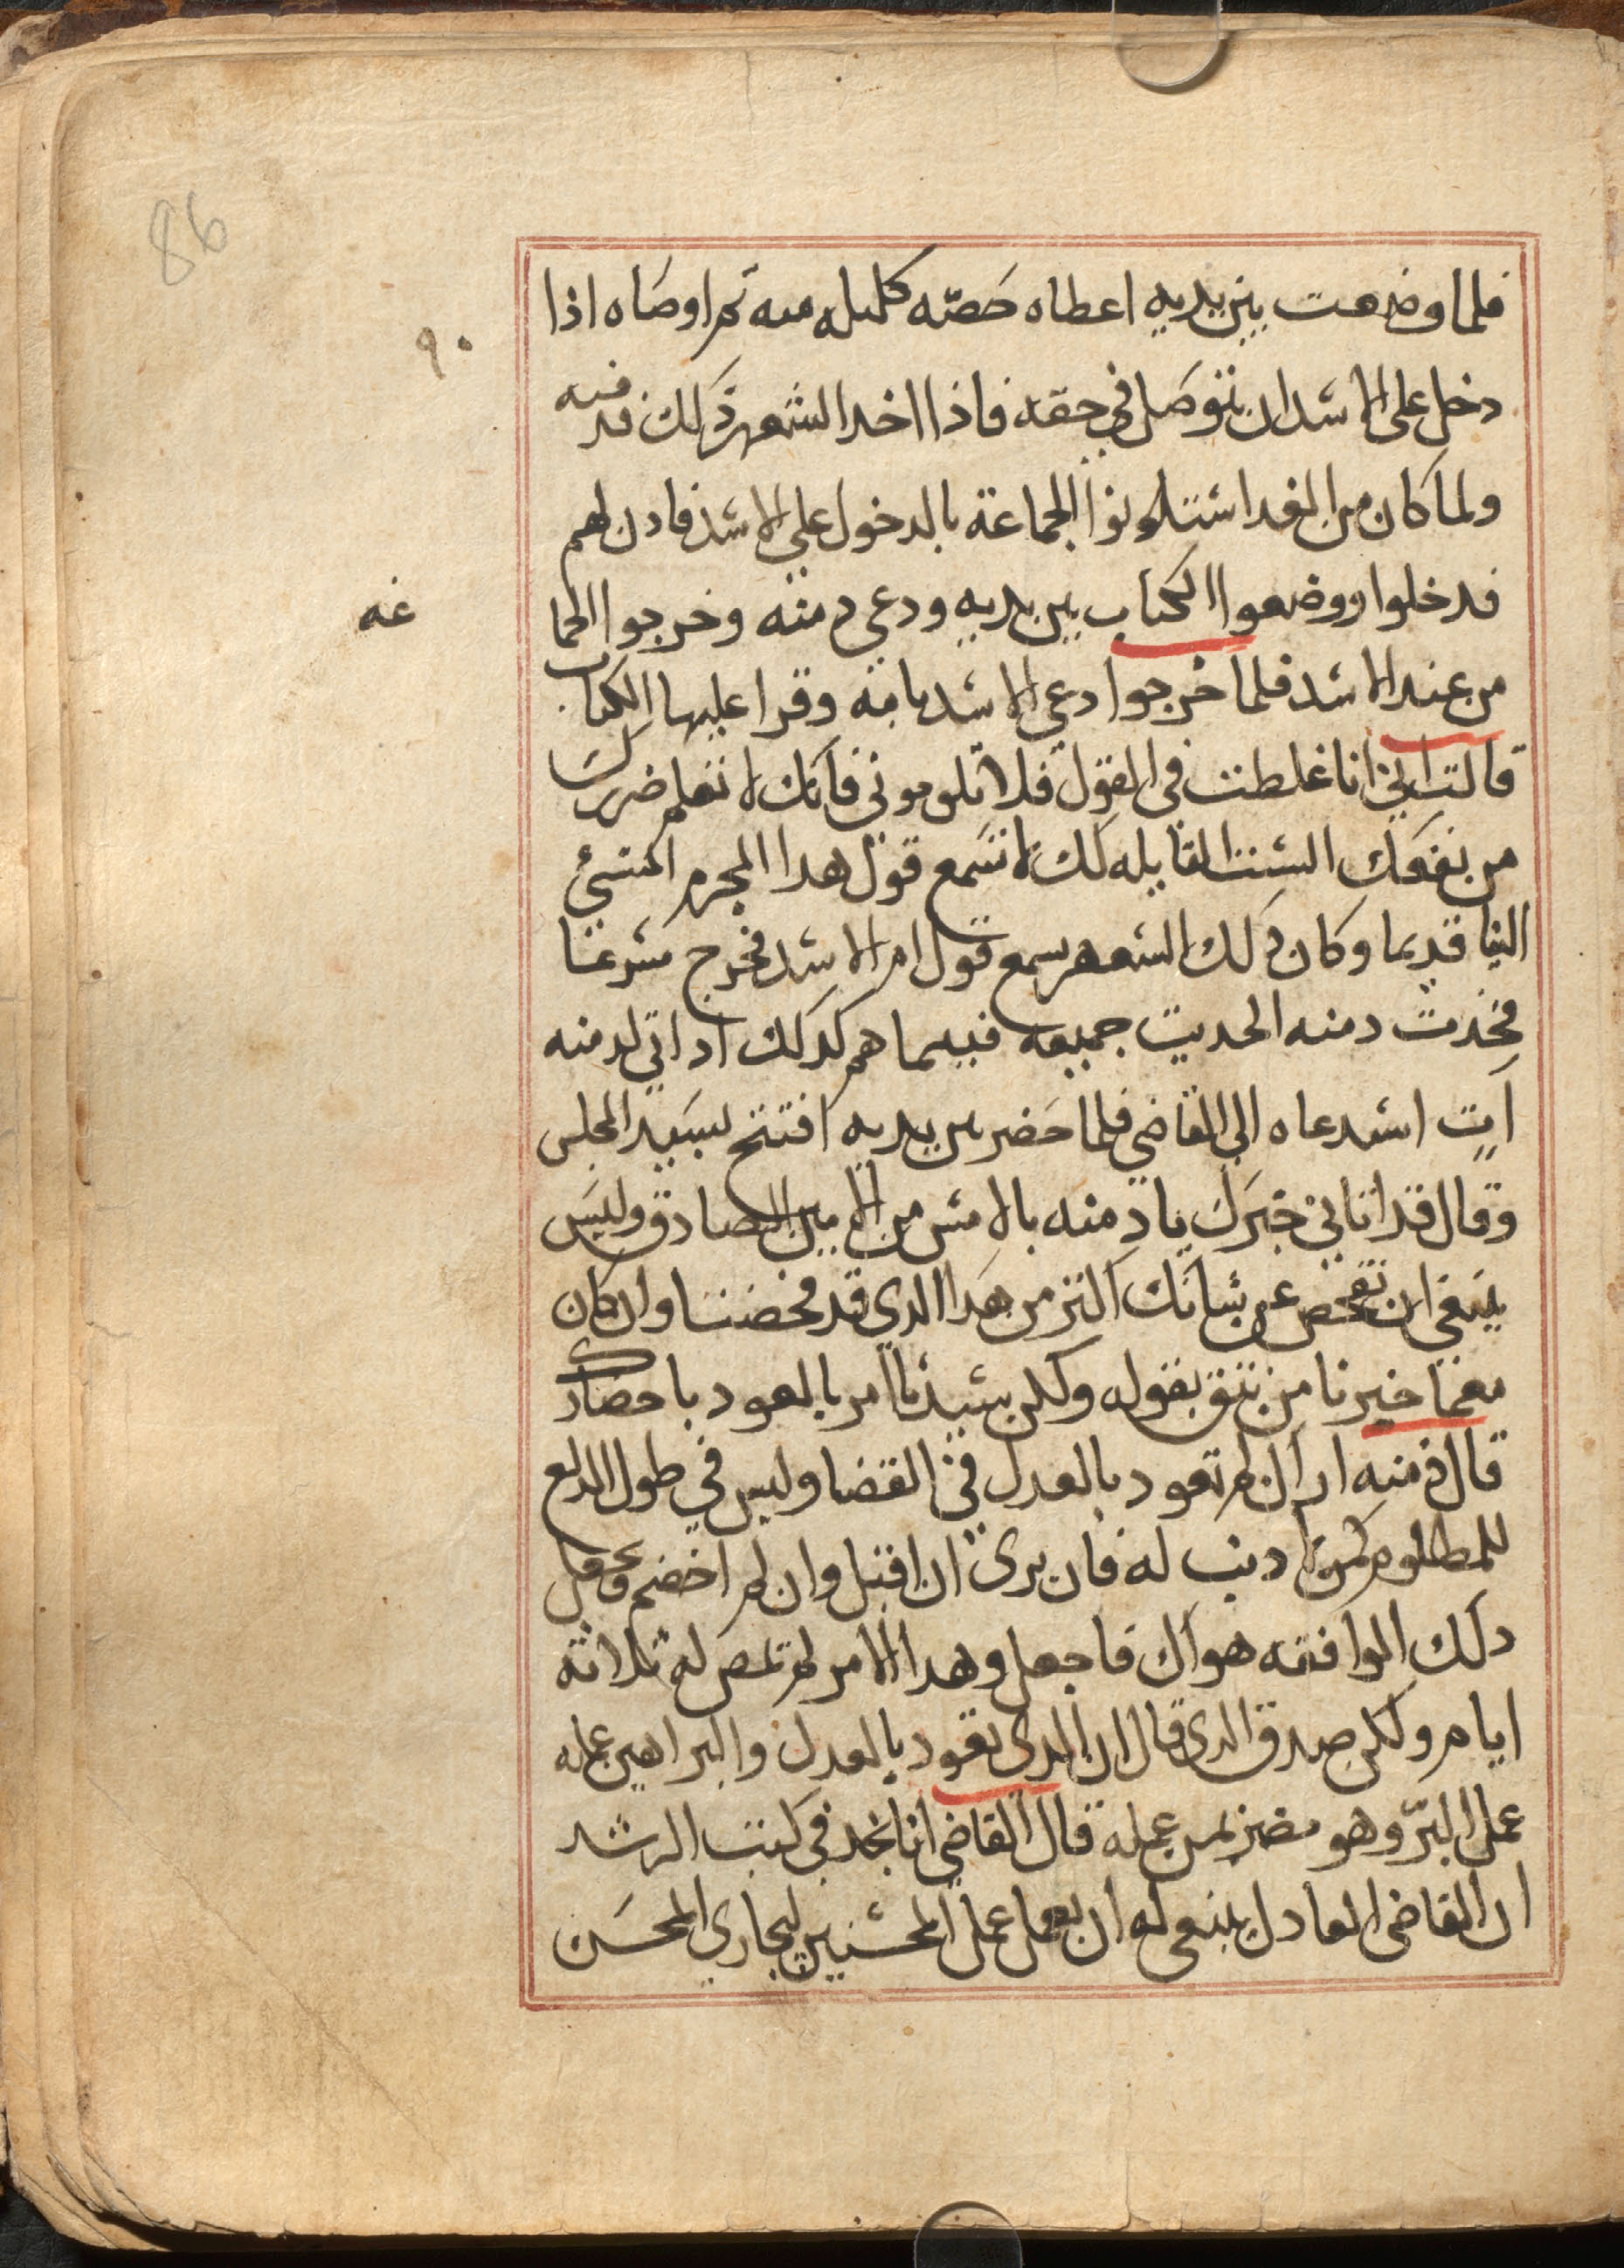 86
٩٠
فلما وضعت بين يديه اعطاه حصّه كليله منه ثم اوصاه اذا
دخل على الاسد ان يتوصل في حقه فاذا اخد الشعهر ذلك
ولما كان من الغد استادنوا الجماعة بالدخول على الاسد فادن لهم
فدخلوا ووضعوا الكتاب بين يديه ودعي دمنه وخرجوا الجما
غه
من عند الاسد فلما خرجوا دعى الاسد بامه وقرا عليها الكتاب
قالت انا غلطت في القول فلا تلوموني فانك لا تعلم ضررك
من نفعك الست القايله لك لا تسمع قول هدا المجرم المسئ
الينا قديما وكان ذلك الشعهر يسمع قول ام الاسد فخرج مسرعا
فحدث دمنه الحديت جميعه فبيما هم كدلك اد اتي لدمنه
آت استدعاه الى القاضي فلما حضر بين يديه افتتح سيد المجلس
وقال قد اتاني خبرك يا دمنه بالامس من الامين الصادق وليس
ينبغي ان نفحص عن شانك اكتر من هدا الدي قد فحصنا وان كان
معما خبرنا من نتق بقوله ولكن سيدنا امر بالعود باحضارك
قال دمنه ارآك لم تعود بالعدل في القضا وليس في طول
للمظلوم لا دنب له فان يرى ان اقتل وان لم اخضم
دلك الموافقه هواك فاجعل وهدا الامر لم تمض له تلاتة
ايام ولكن صدق الدي قال ان الدي تعود بالعدل والبراهين عمله
عمل البرّ وهو مضر بمن عمله قال القاضي انا نجد في كتب الرشد
ان القاضي العادل ينبغي له ان يعمل عمل المحسنين ليجازي المحسن